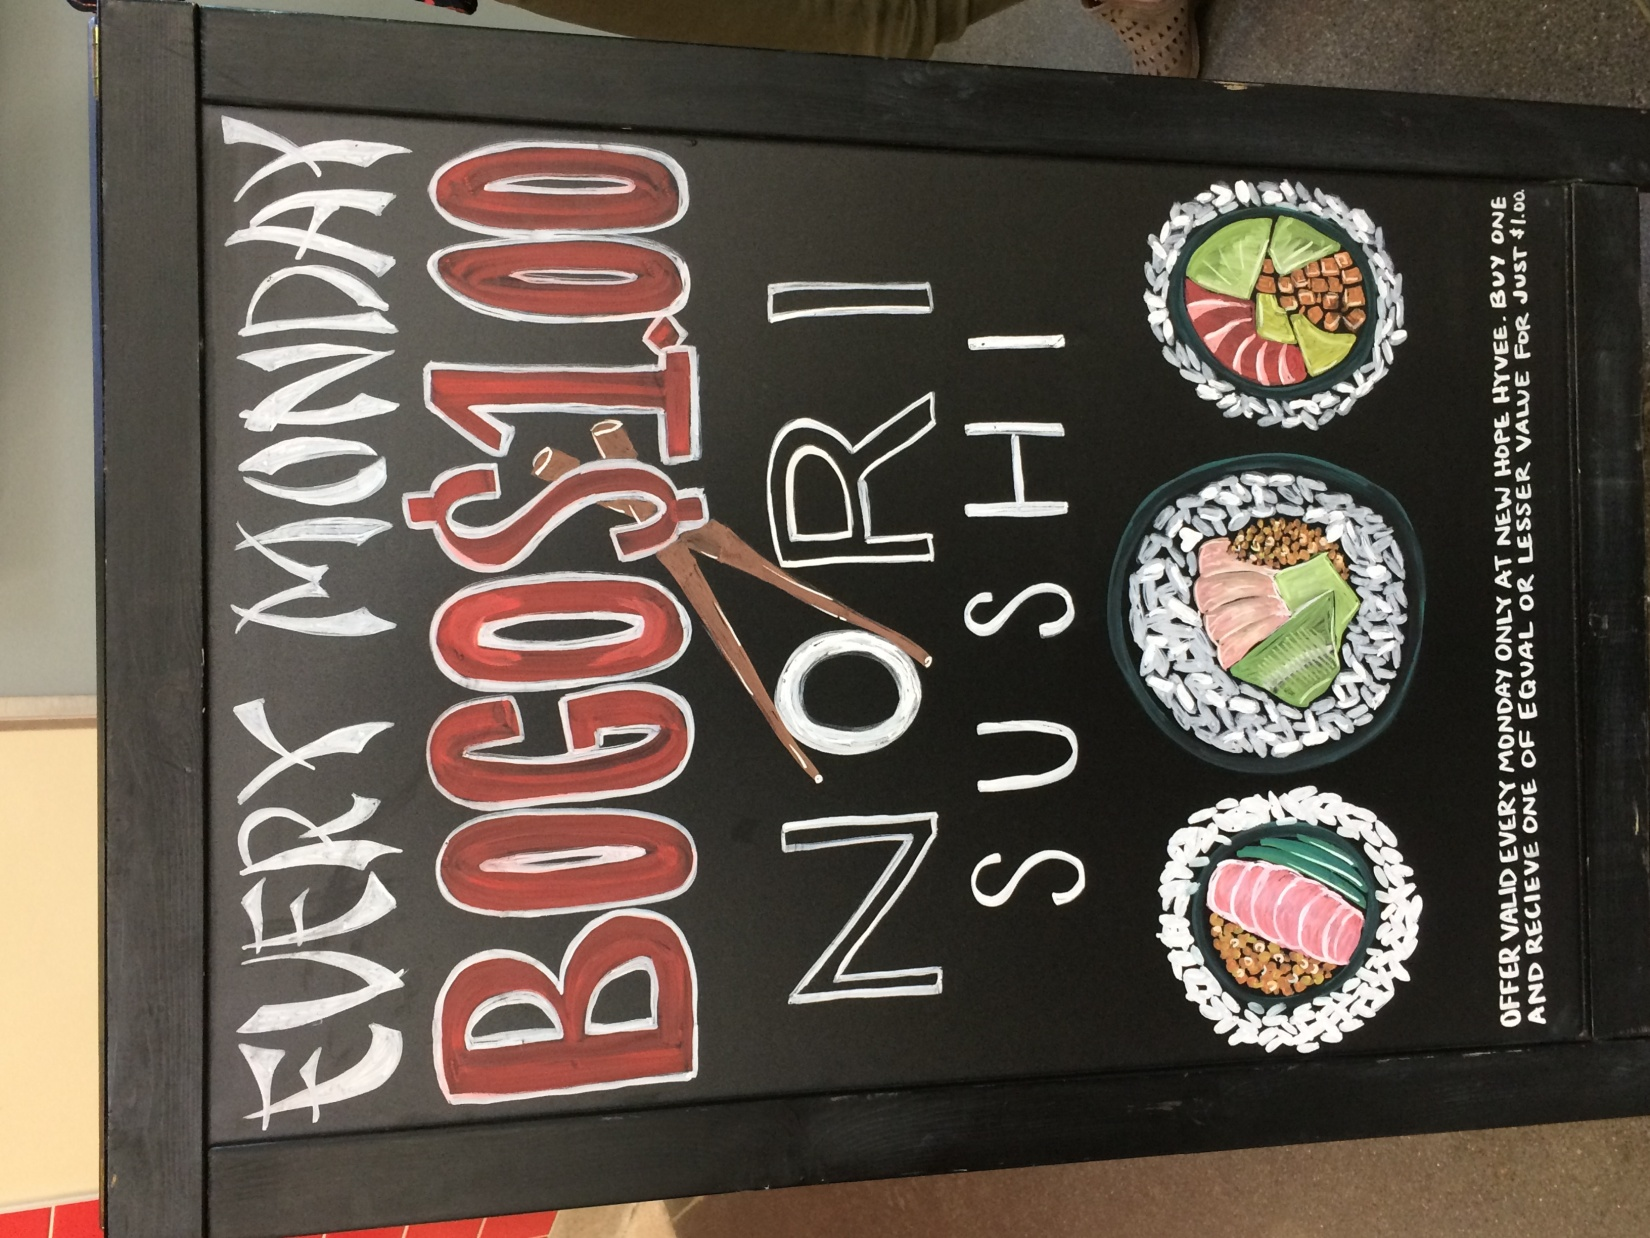 EVERY MONDAY
BOGO$1.00
NORI
SUSHI
OFFER VALID EVERY MONDAY ONLY AT NEW HOPE HYVEE. BUY ONE
AND RECIEVE ONE OF EQUAL OR LESSER VALUE FOR JUST $1.00.